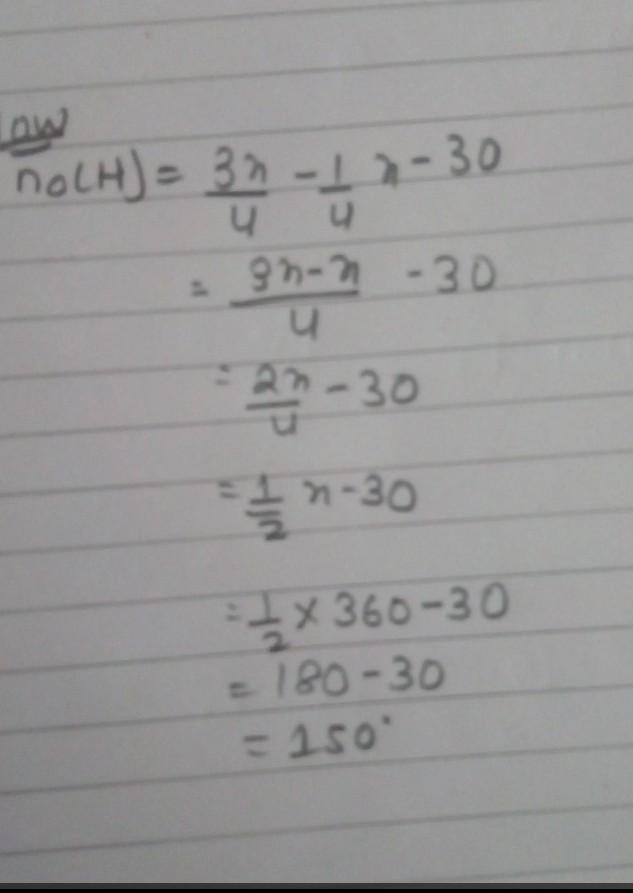 Now
no(H) = 3x/4 - 1/4 x - 30
= 3x-x/4 - 30
= 2x/4 - 30
= 1/2 x - 30
= 1/2 × 360 - 30
= 180 - 30
= 150